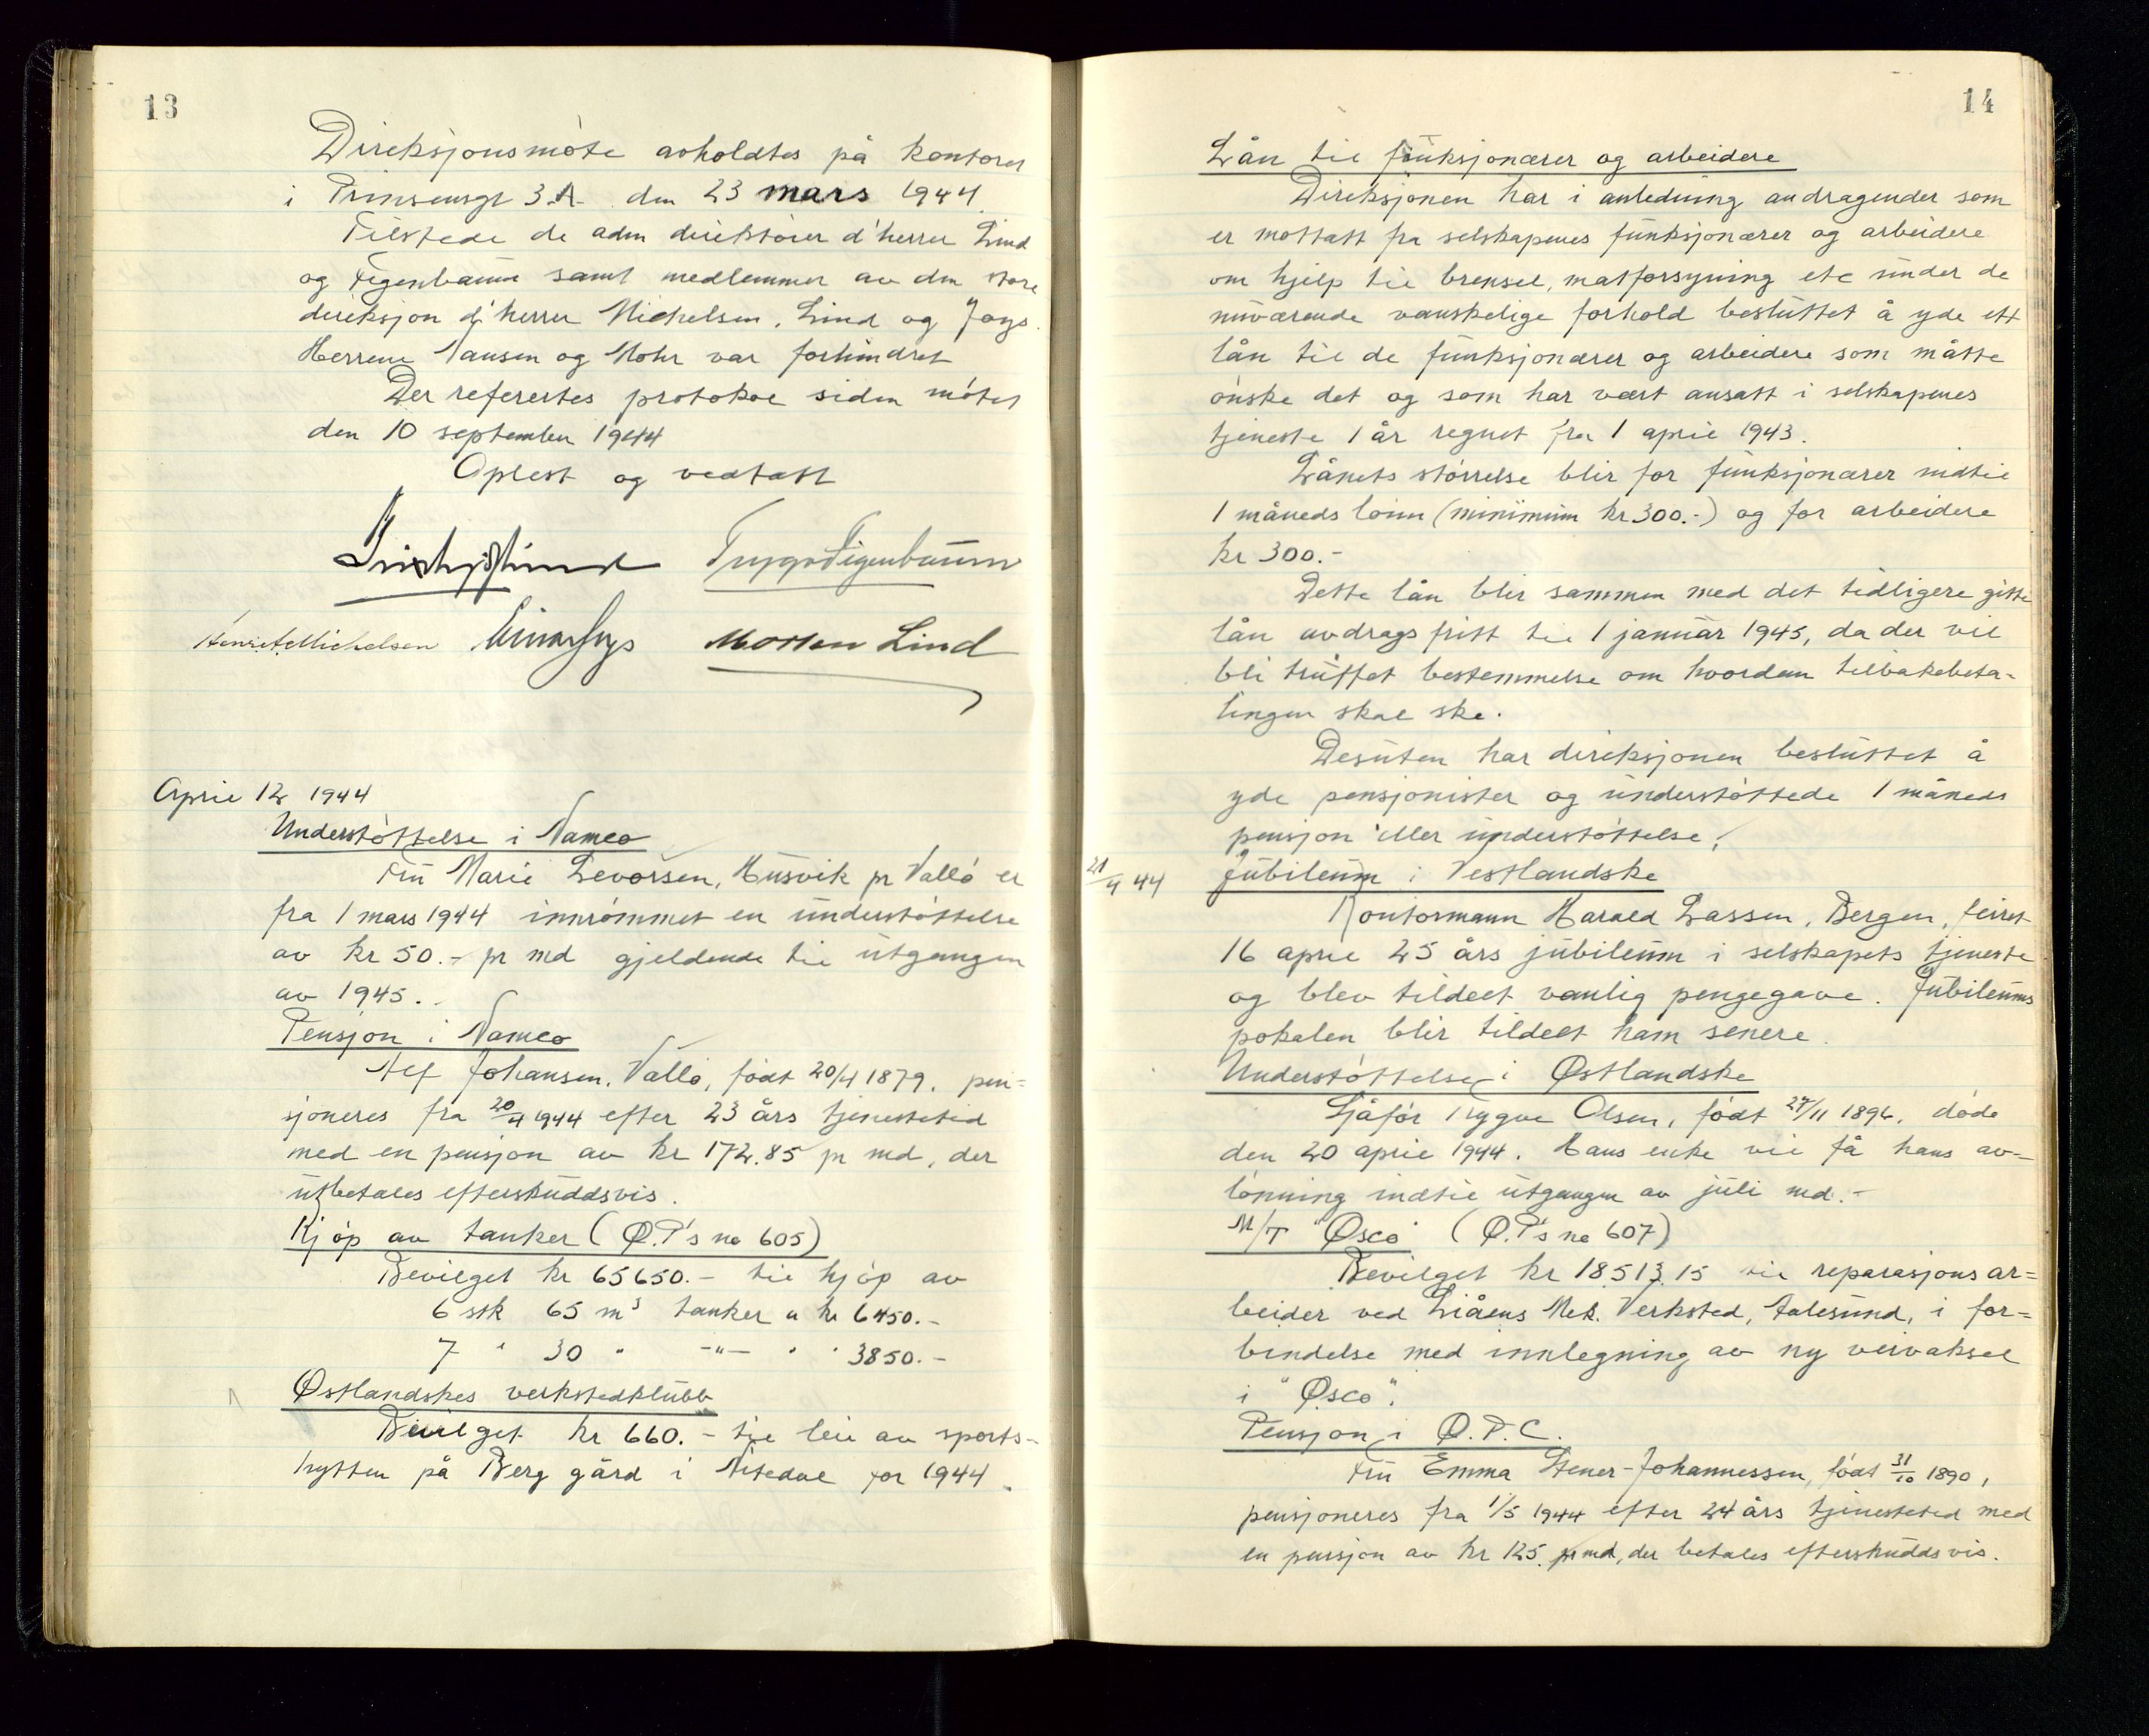 13
Direksjonsmöte avholdtes på kontoret
i Prinsensgt 3.A. den 23 mars 1944.
Tilstede de adm direktörer d'herrer Lind
og Figenbaum samt medlemmer av den store
direksjon d'herrer Michelsen, Lind og Jays.
Herrene Nansen og Mohr var forhindret
Der refertes protokol siden mötet
den 10 september 1944
Oplest og vedtatt
Trygve Figenbaum
Henrik A Michelsen Einar Jays Morten Lind
April 12 1944
Understöttelse i Namco
Fru Marie Levorsen, Husvik pr Vallö er
fra 1 mars 1944 innrömmet en understöttelse
av kr 50.- pr md gjeldende til utgangen
av 1945.
Pensjon i Namco
Alf Johansen, Vallö, födt 20/4 1879, pen=
sjoneres fra 20/4 1944 efter 23 års tjenestetid
med en pensjon av kr 172.85 pr md, der
utbetales efterskuddsvis.
Kjöp av tanker (Ø.P's no 605)
Bevilget kr 65650.- til kjöp av
6 stk 65 m³ tanker a kr 6450.-
7 " 30 " -"- " " 3850.-
Østlandskes verkstedklubb
Bevilget kr 660.- til leie av sports-
hytten på Berg gård i Nitedal for 1944.
14
Lån til funksjonærer og arbeidere
Direksjonen har i anledning andragender som
er mottatt fra selskapenes funksjonærer og arbeidere
om hjelp til brensel, matforsyning etc under de
nuværende vanskelige forhold besluttet å yde ett
lån til de funksjonærer og arbeidere som måtte
önske det og som har vært ansatt i selskapenes
tjeneste 1 år regnet fra 1 april 1943.
Lånets störrelse blir for funksjonærer indtil
1 måneds lönn (minimum kr 300.-) og for arbeidere
kr 300.-
Dette lån blir sammen med det tidligere gitte
lån avdragsfritt til 1 januar 1945, da der vil
bli truffet bestemmelse om hvordan tilbakebeta-
lingen skal ske.
Desuten har direksjonen besluttet å
yde pensjonister og understöttede 1 måneds
pensjon eller understöttelse.
21/4 44 Jubileum i Vestlandske
Kontormann Harald Lassen, Bergen, feiret
16 april 25 års jubileum i selskapets tjeneste
og blev tildelt vanlig pengegave. Jubileums
pokalen blir tildelt ham senere.
Understöttelse i Østlandske
Sjåför Trygve Olsen, födt 27/11 1896, döde
den 20 april 1944. Hans enke vil få hans av=
lönning indtil utgangen av juli md.-
M/T "Øsco" (Ø.P's no 607)
Bevilget kr 18.513.15 til reparasjonsar=
beider ved Liåens Mek. Verksted, Aalesund, i for=
bindelse med innlegning av ny veivaksel
i "Øsco".
Pensjon i Ø.P.C.
Fru Emma Stener-Johannessen, födt 31/10 1890,
pensjoneres fra 1/5 1944 efter 24 års tjenestetid med
en pensjon av kr 125. pr md, der betales efterskuddsvis.